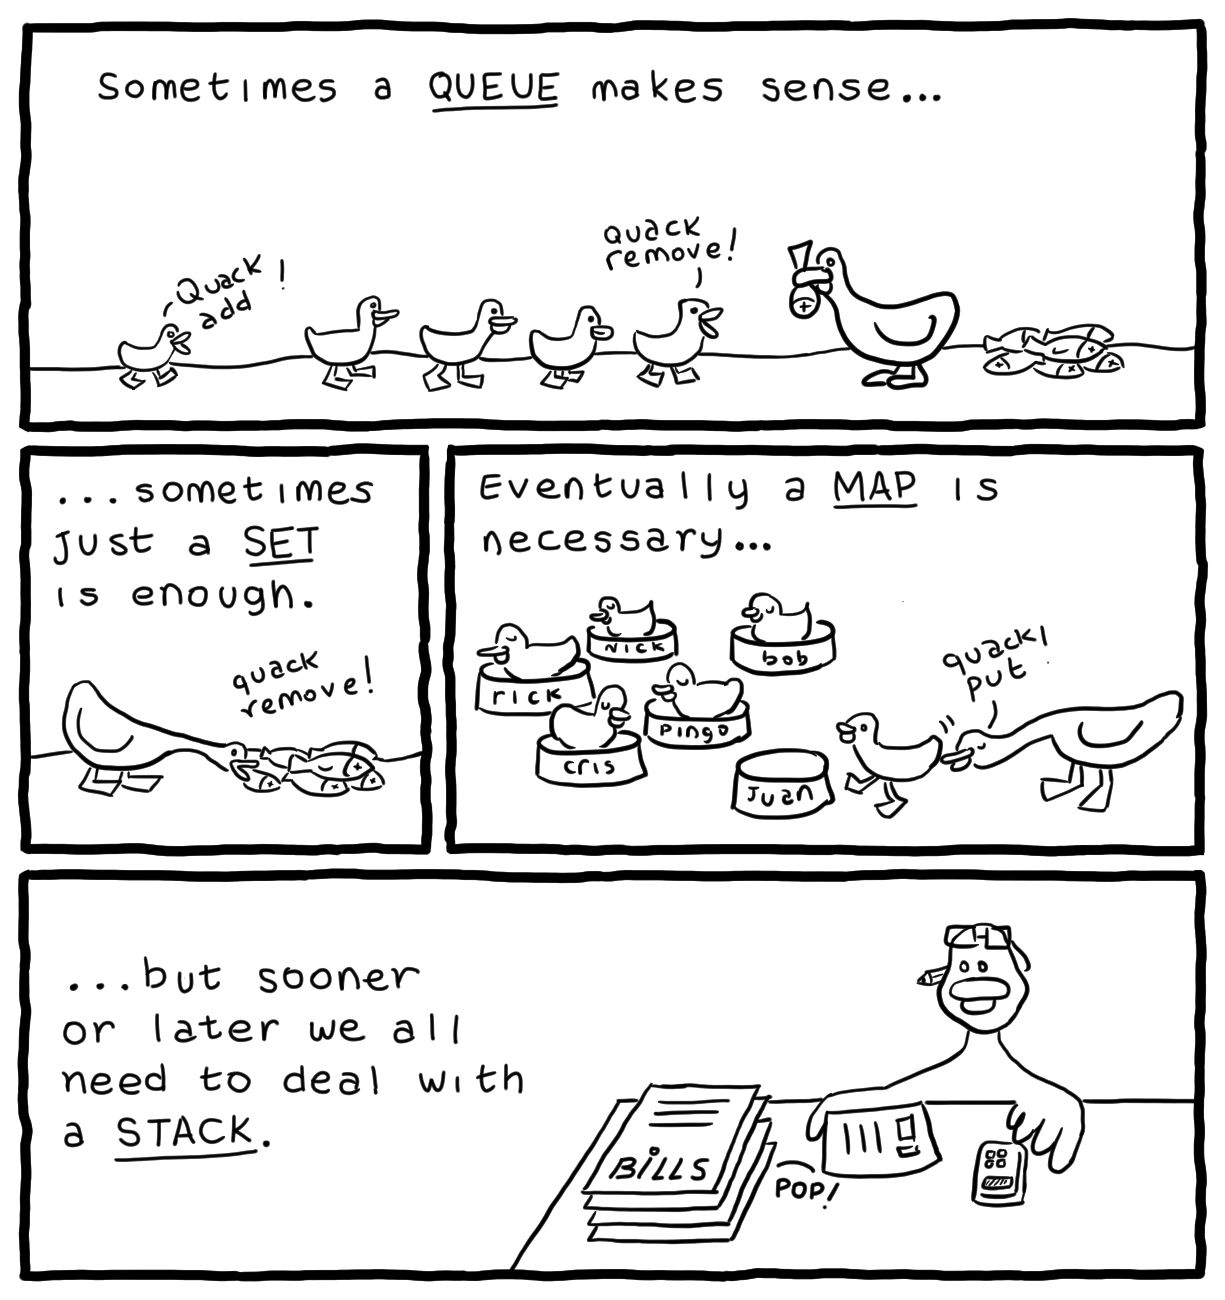 Sometimes a QUEUE makes sense...
Quack
add!
Quack
remove!
...sometimes
just a SET
is enough.
quack
remove!
Eventually a MAP is
necessary...
Nick
bob
rick
Pingo
cris
Juan
quack!
put
...but sooner
or later we all
need to deal with
a STACK.
BiLLS
POP!